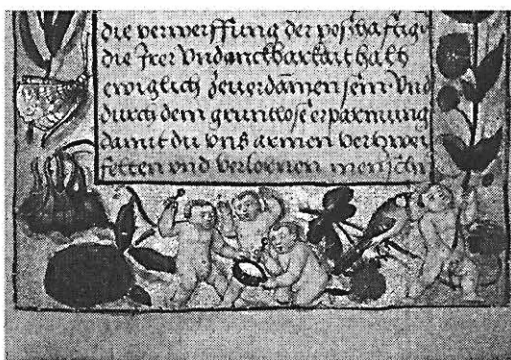 die verwerffung der poßhafftige
die Irer Vndanckbarkait halb
ewiglich zeuerdamen sein. Vnd
durch dem gruntlose erparmung
damit du vns armen verzwei
felten vnd verlornen mensche